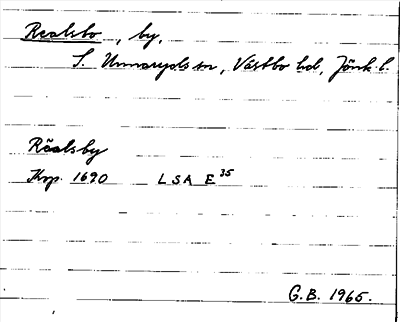 Realsbo, by,
S. Unnaryds sn, Västbo hd, Jönk. l.
Röalsby
Kop. 1690 LSA E 35
G.B. 1965.